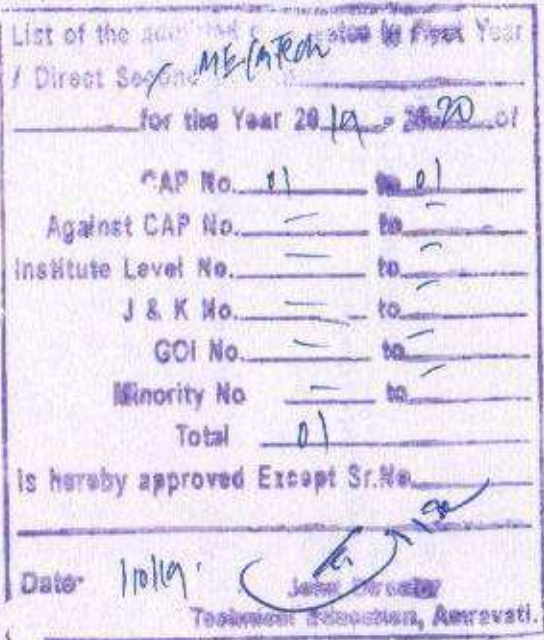 List of the admitted candidates in First Year
/ Direct Second ME/MTech
for the Year 2019 - 2020 of
CAP No. 01 to 01
Against CAP No. — to —
Institute Level No. — to —
J & K No. — to —
GOI No. — to —
Minority No — to —
Total 01
is hereby approved Except Sr.No.
Date 1/10/19.
Joint Director
Technical Education, Amravati.